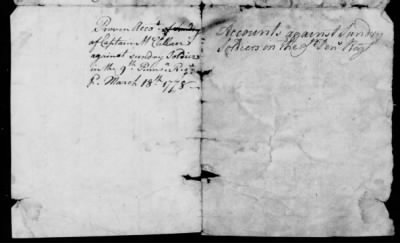 Proven Acco.ts of Sundry
of Captain McCullam
against sundry Soldiers
in the 9th Penns.a Reg.t
March 18th 1778
Accounts against Sundry
Soldiers on the 9 Penn.a Reg.t